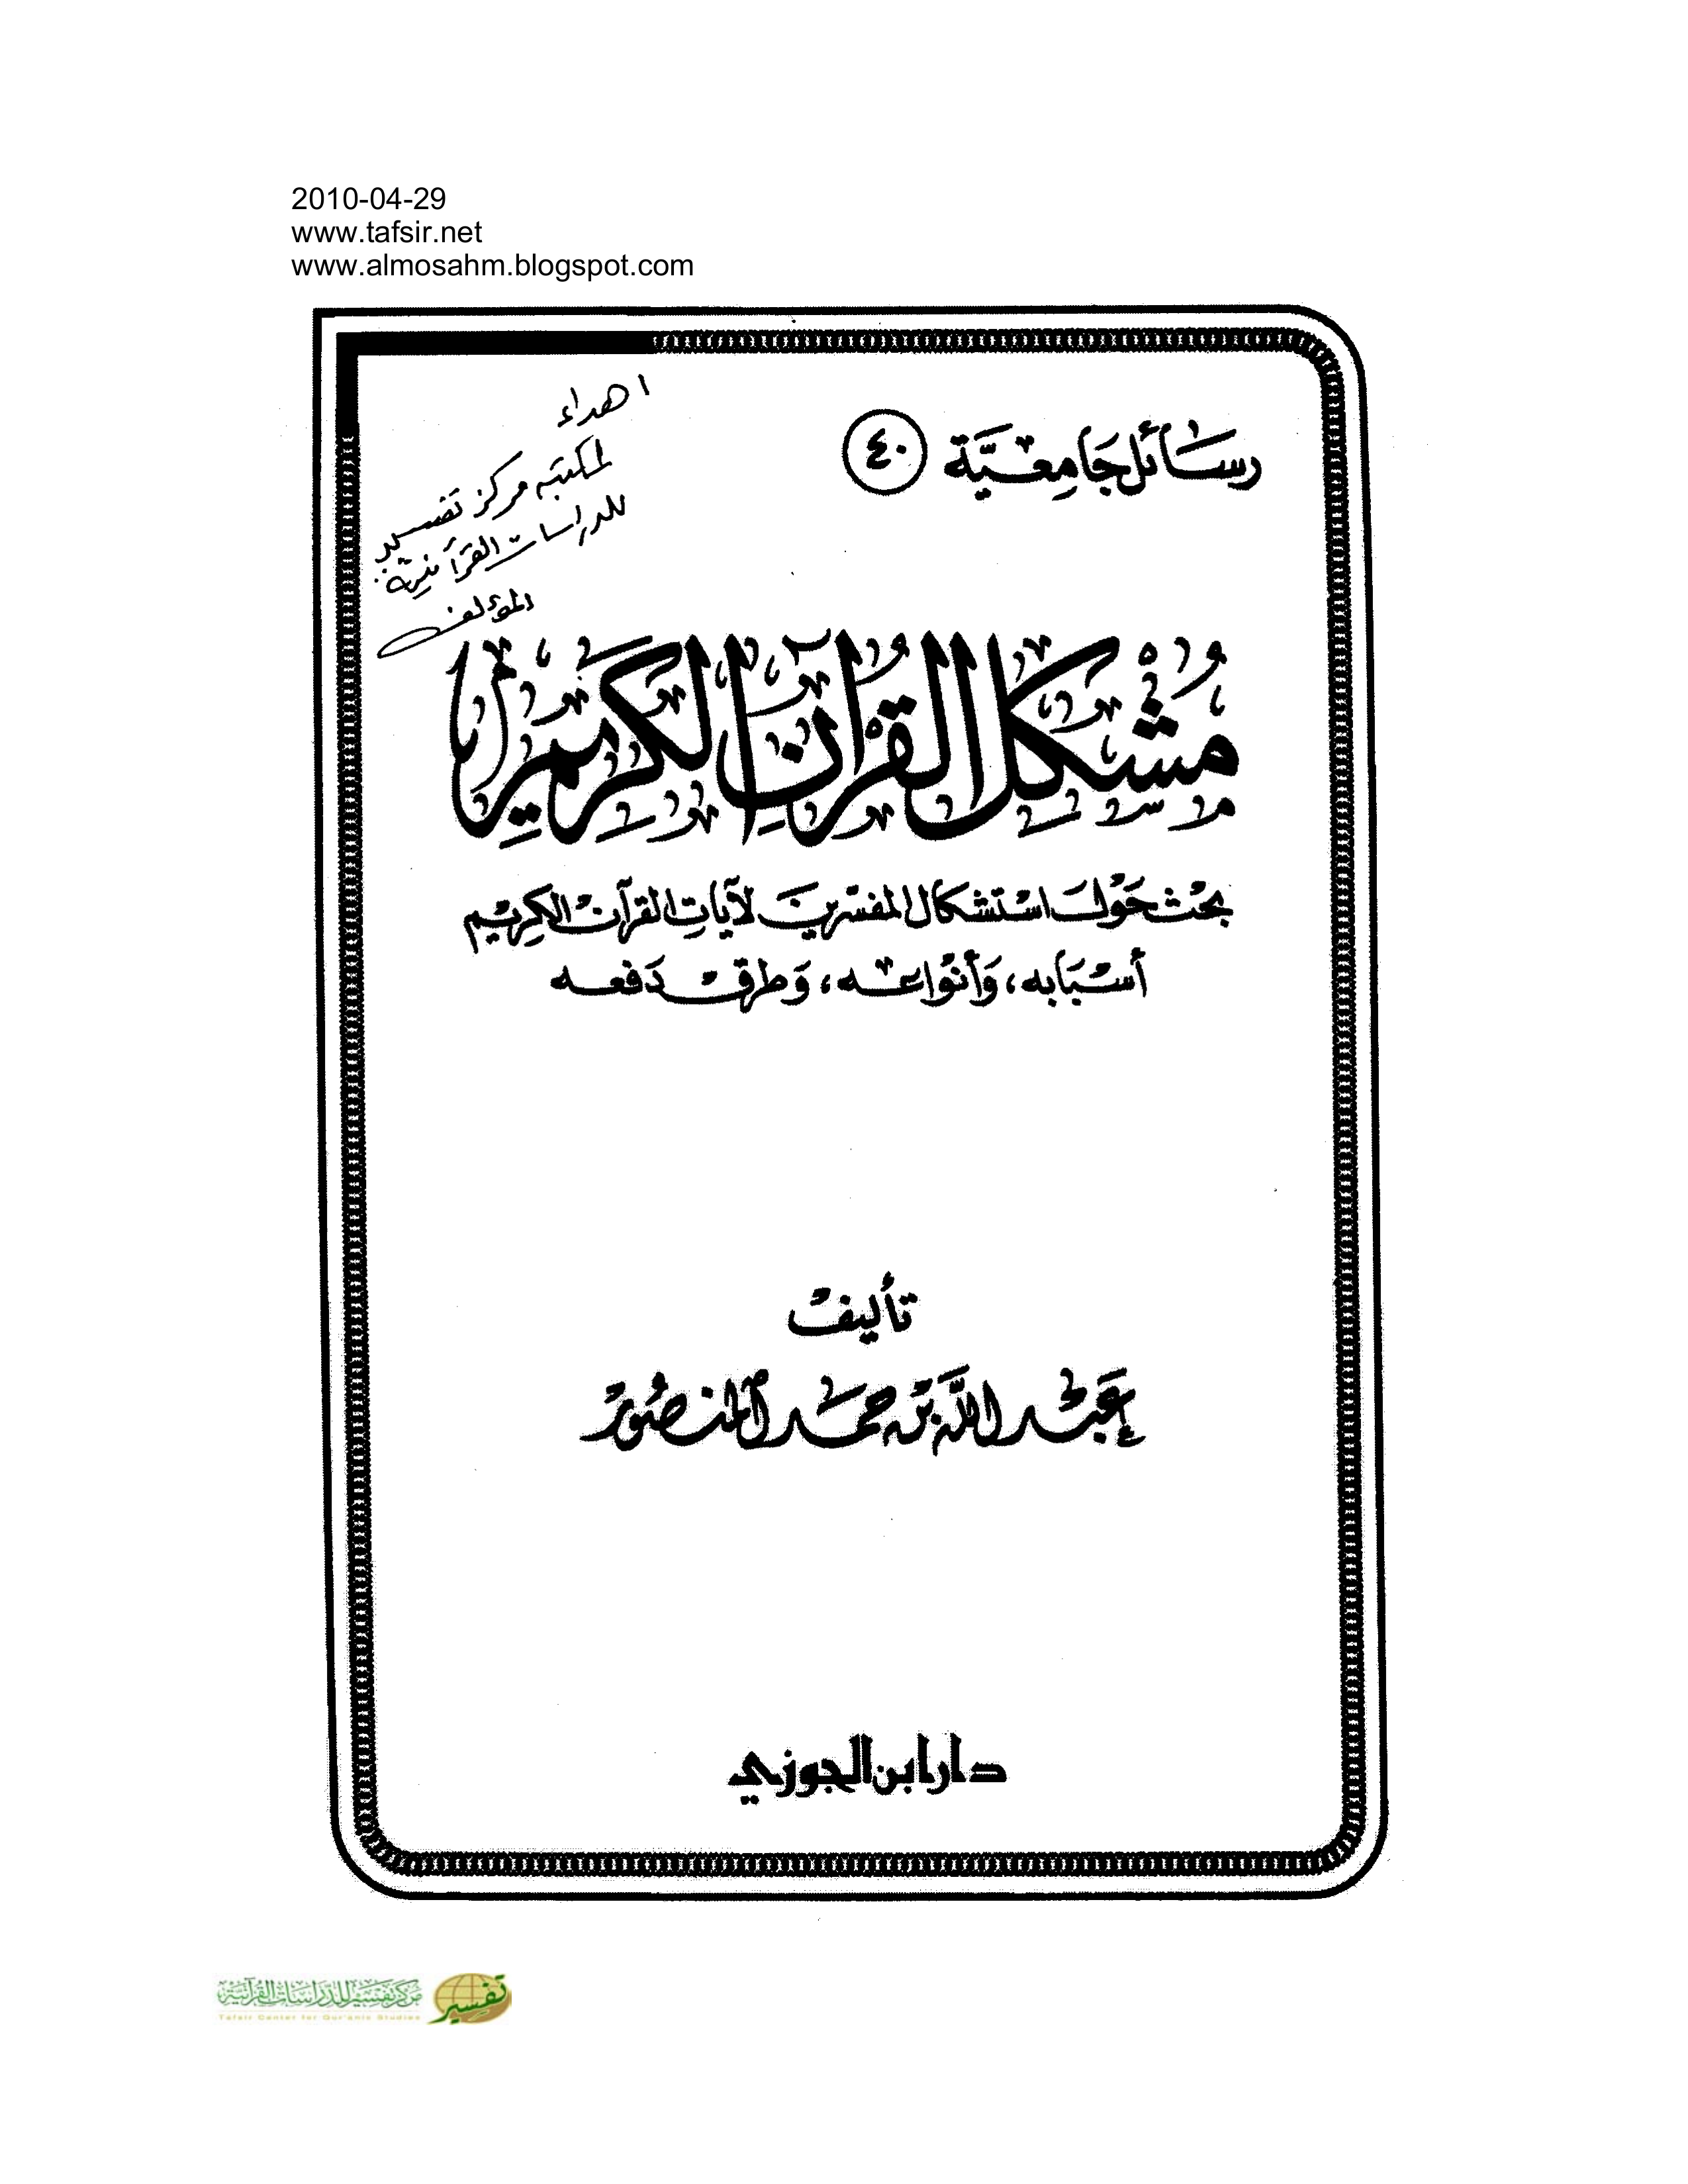 2010-04-29
www.tafsir.net
www.almosahm.blogspot.com
رسائل جامعية ٤٠
اهداء
لمكتبة مركز تفسير
للدراسات القرآنية
المؤلف
مُشْكِلُ القُرآنِ الكَرِيمِ
بحث حول استشكال المفسرين لآيات القرآن الكريم
أسبابه، وأنواعه، وطرق دفعه
تأليف
عبد الله بن حمد المنصور
دار ابن الجوزي
مركز تفسير للدراسات القرآنية
Tafsir Center for Qur'anic Studies
تفسير